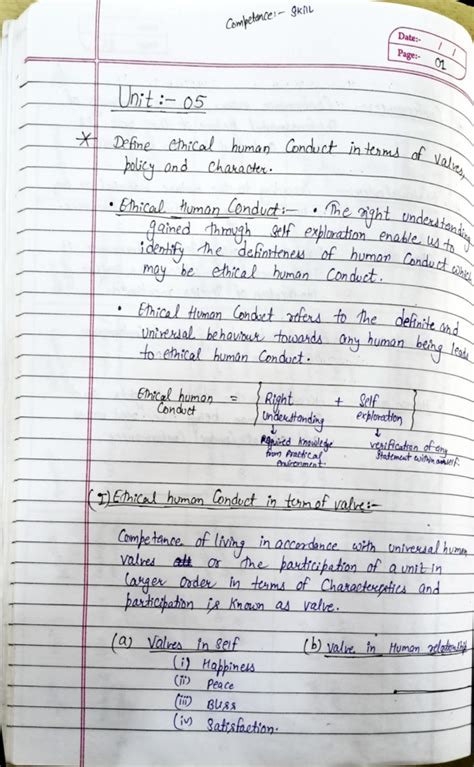 Competence:- skill
Date:- / /
Page:- 01
Unit :- 05
* Define ethical human Conduct in terms of values,
policy and character.
• Ethical Human Conduct:- • The right understanding
gained through self exploration enable us to
identify the definiteness of human Conduct which
may be ethical human Conduct.
• Ethical Human Conduct refers to the definite and
universal behaviour towards any human being leads
to ethical human Conduct.
Ethical human Conduct = { Right understanding + Self exploration }
↓ ↓
Required knowledge from Practical environment. verification of any statement within
(I) Ethical human Conduct in term of valve:-
Competance of living in accordance with universal human
valves or the participation of a unit in
Larger order in terms of Characteristics and
participation is known as valve.
(a) Valves in self (b) valve in Human relationship
(i) Happiness
(ii) Peace
(iii) Bliss
(iv) Satisfaction.